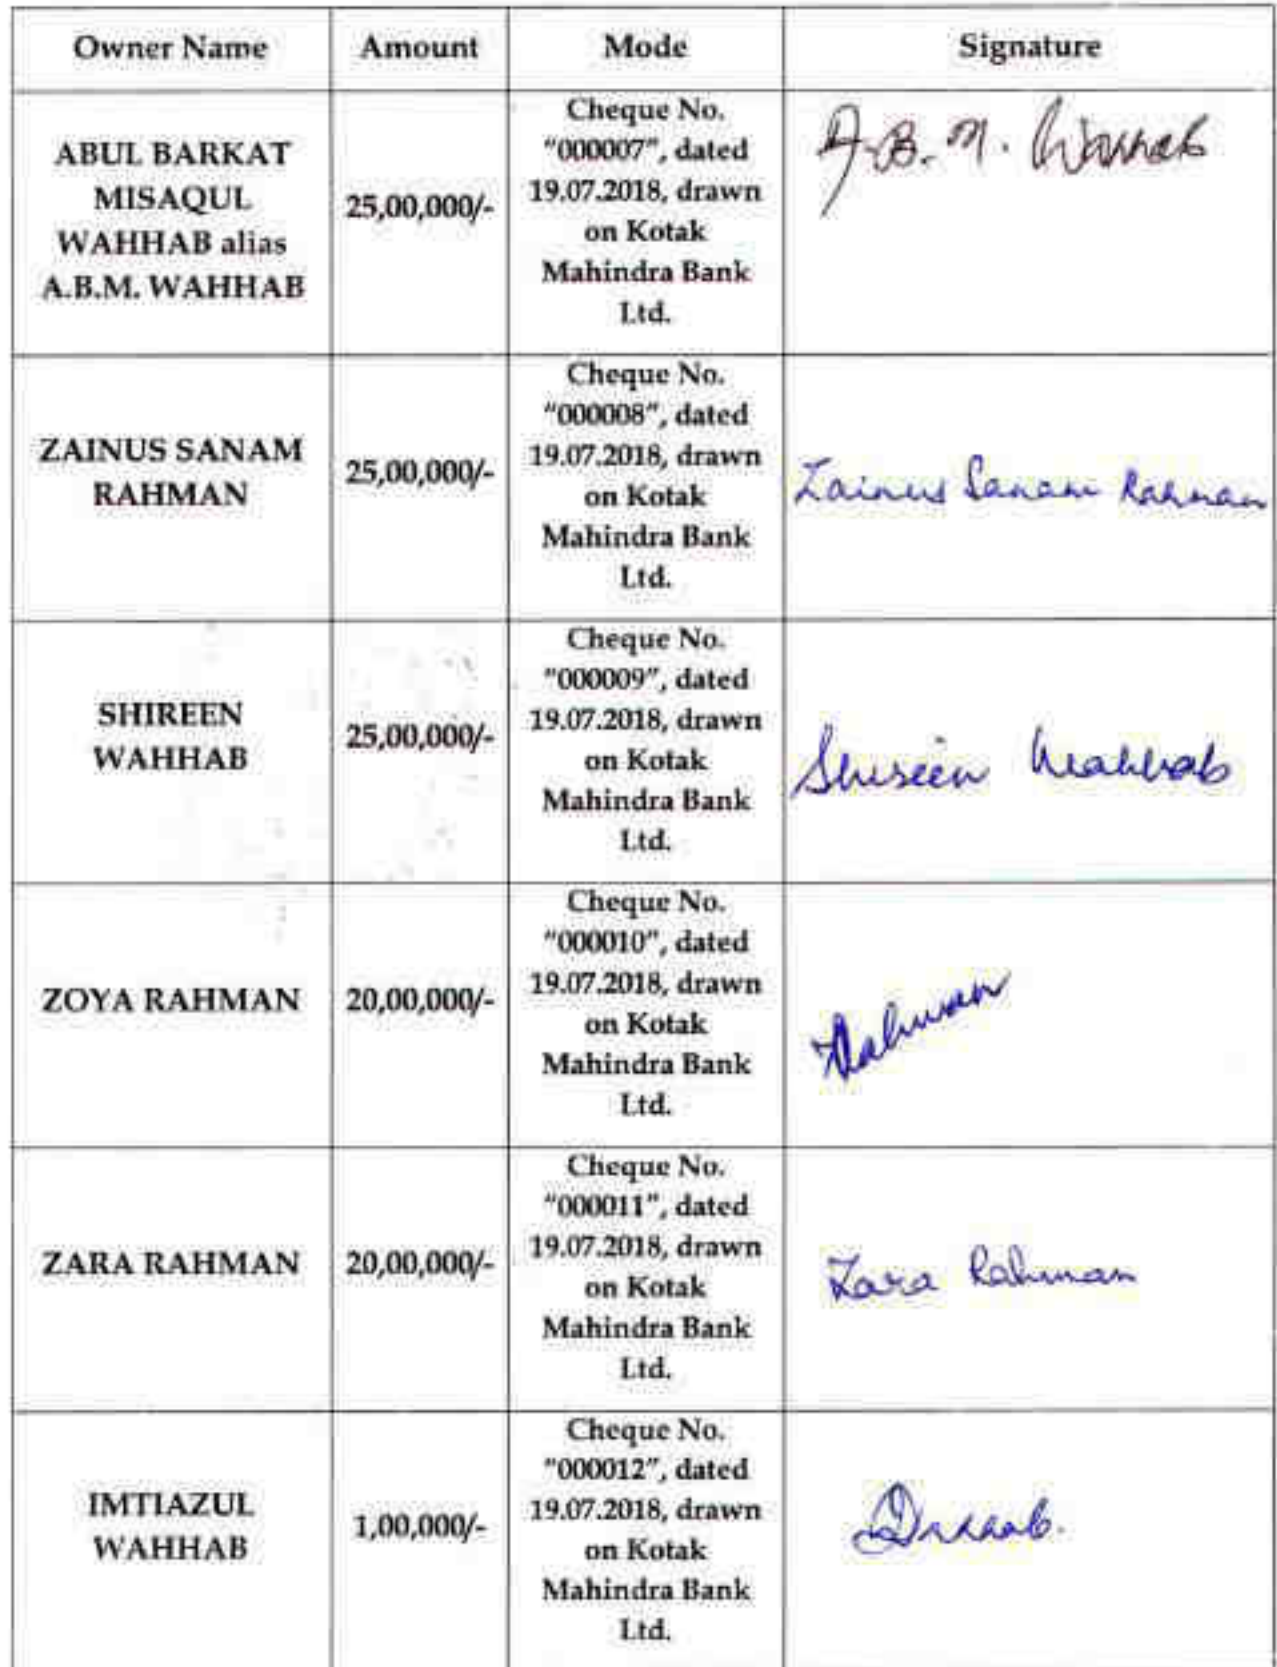 Owner Name Amount Mode Signature
ABUL BARKAT
MISAQUL
WAHHAB alias
A.B.M. WAHHAB
25,00,000/-
Cheque No.
"000007", dated
19.07.2018, drawn
on Kotak
Mahindra Bank
Ltd.
A.B.M. Wahhab
ZAINUS SANAM
RAHMAN
25,00,000/-
Cheque No.
"000008", dated
19.07.2018, drawn
on Kotak
Mahindra Bank
Ltd.
Zainus Sanam Rahman
SHIREEN
WAHHAB
25,00,000/-
Cheque No.
"000009", dated
19.07.2018, drawn
on Kotak
Mahindra Bank
Ltd.
Shireen Wahhab
ZOYA RAHMAN
20,00,000/-
Cheque No.
"000010", dated
19.07.2018, drawn
on Kotak
Mahindra Bank
Ltd.
ZRahman
ZARA RAHMAN
20,00,000/-
Cheque No.
"000011", dated
19.07.2018, drawn
on Kotak
Mahindra Bank
Ltd.
Zara Rahman
IMTIAZUL
WAHHAB
1,00,000/-
Cheque No.
"000012", dated
19.07.2018, drawn
on Kotak
Mahindra Bank
Ltd.